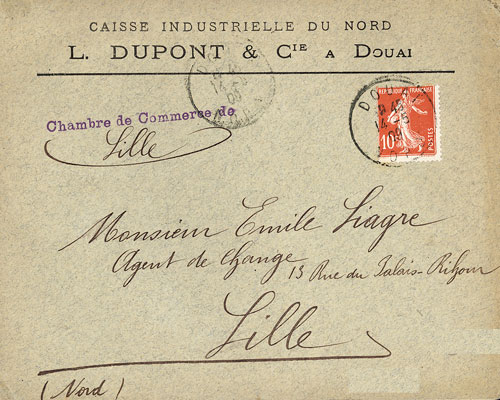 CAISSE INDUSTRIELLE DU NORD
L. DUPONT & CIE A DOUAI
DOUAI
14-5
09
Chambre de Commerce de
Lille
REPUBLIQUE FRANÇAISE
10c
POSTES
Monsieur Emile Liagre
Agent de Change
13 Rue du Palais-Rihour
Lille
(Nord)